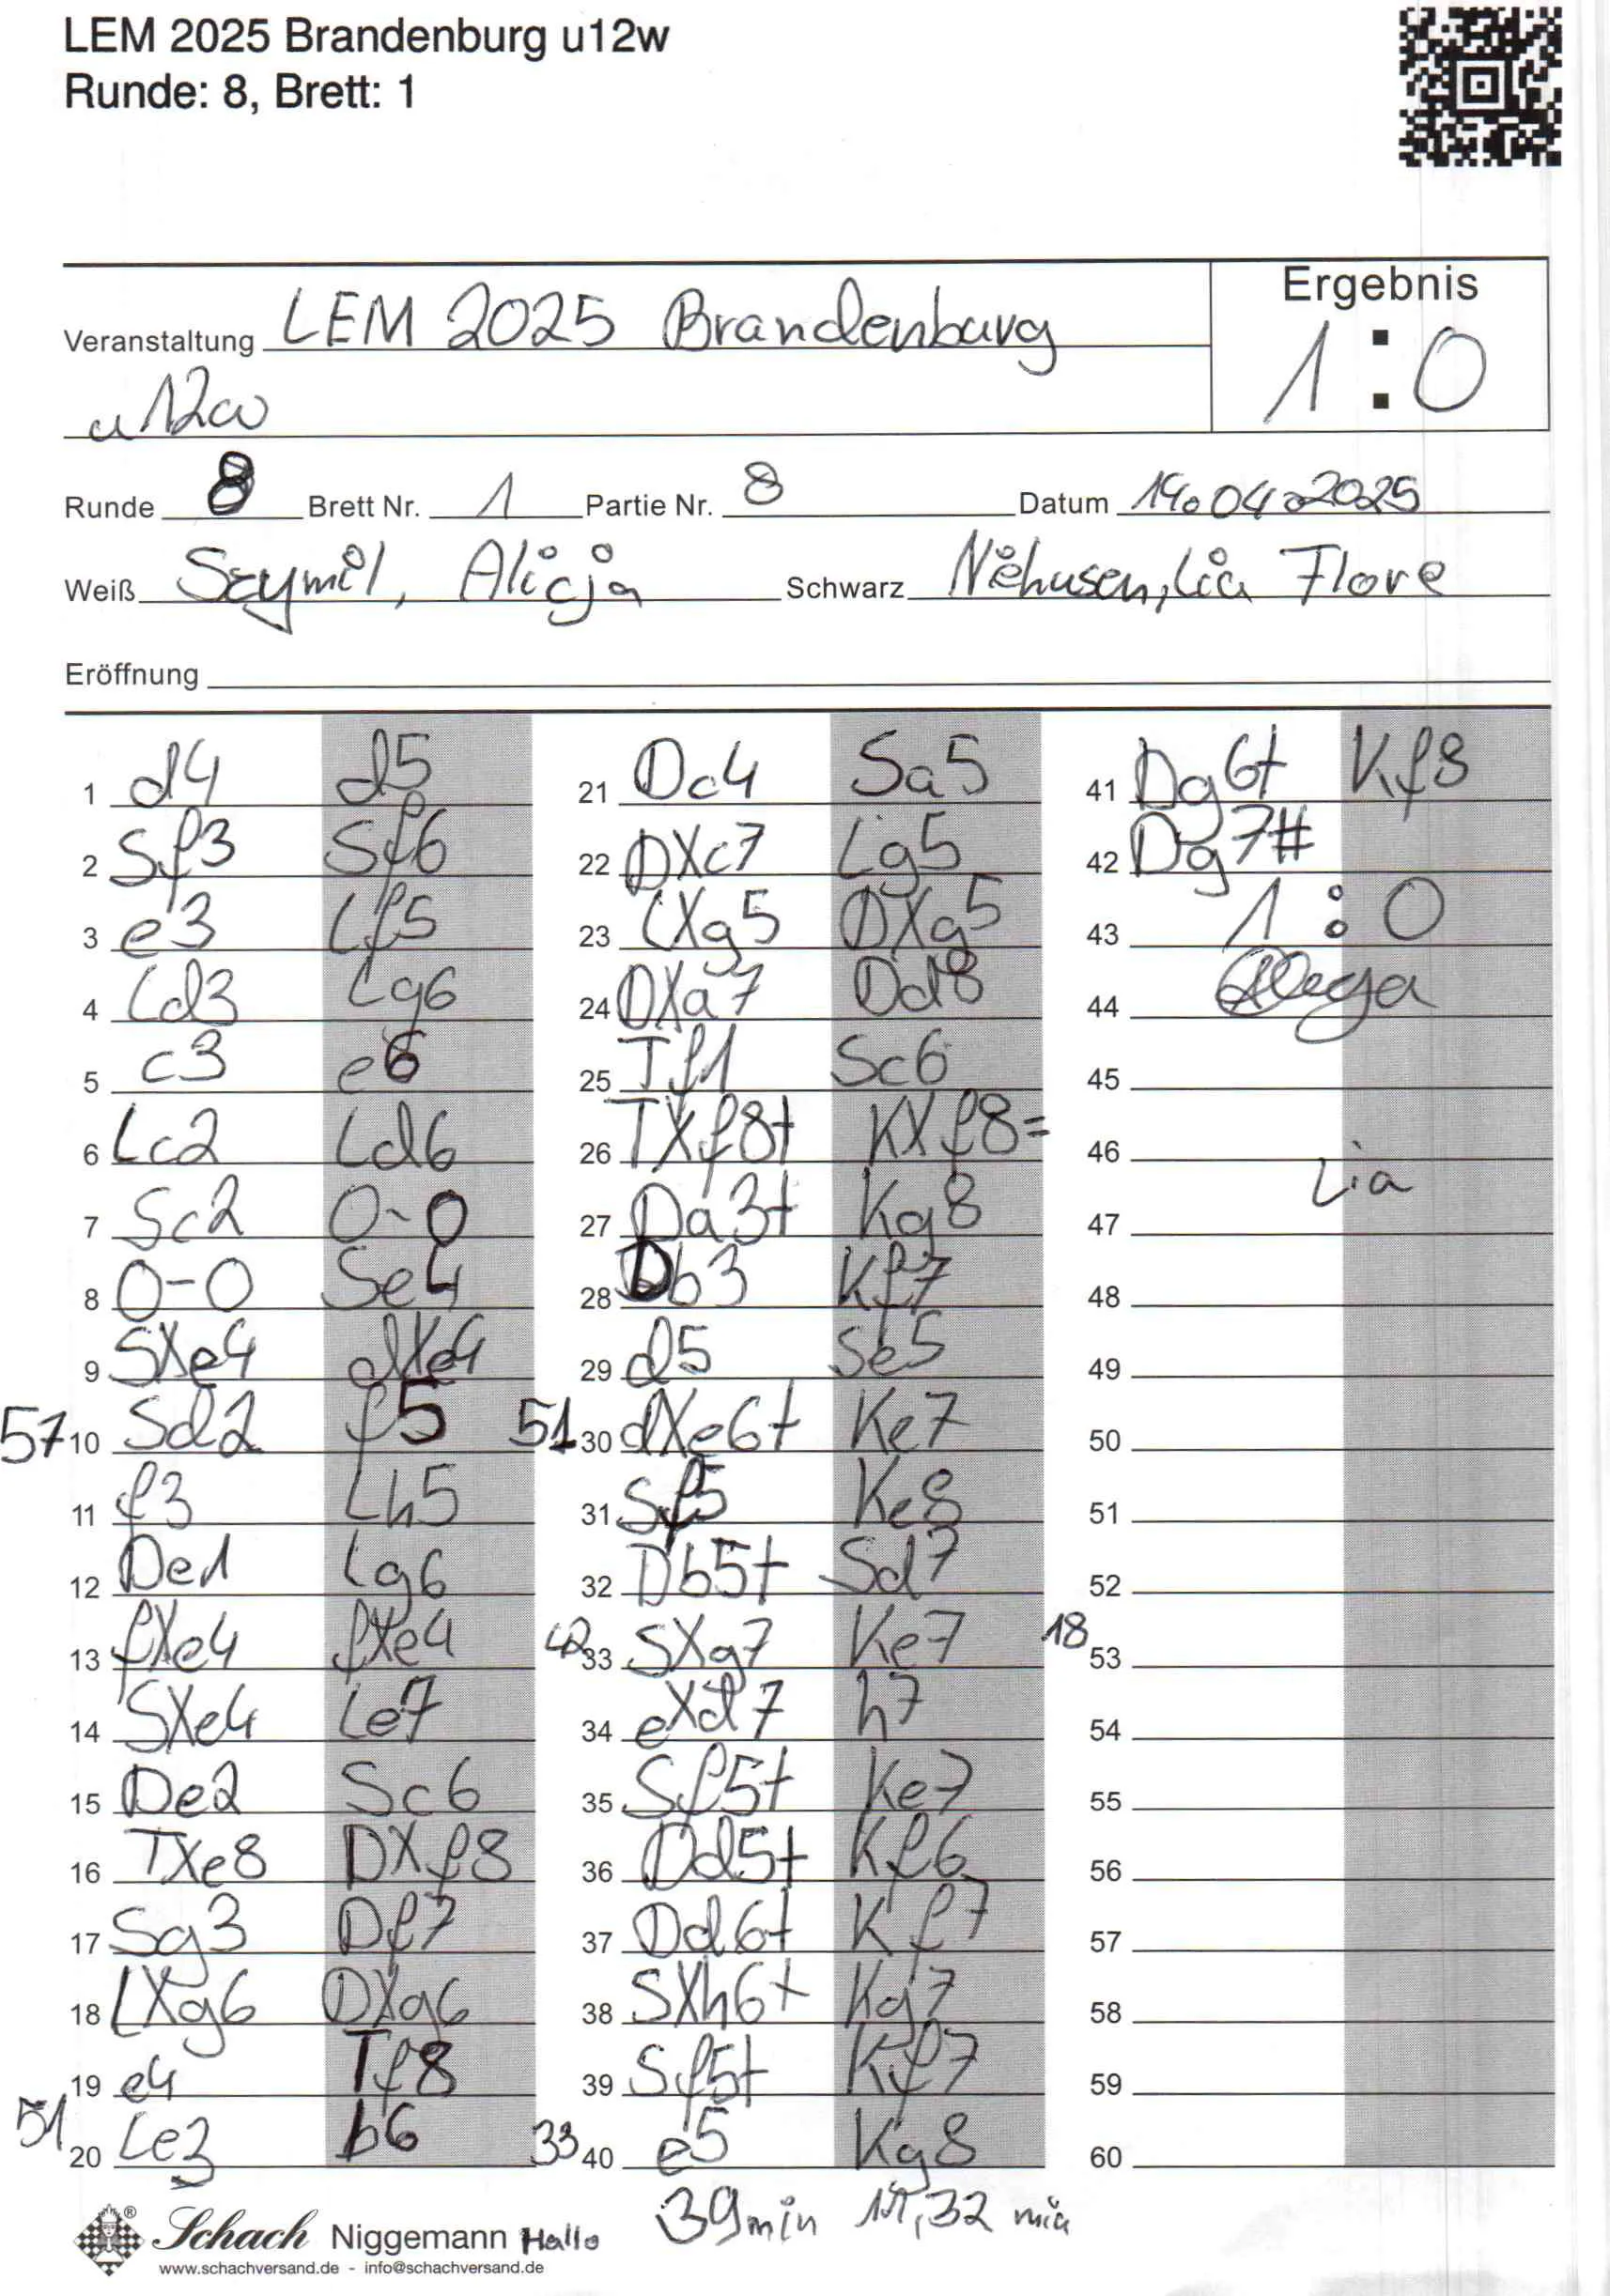 LEM 2025 Brandenburg u12w
Runde: 8, Brett: 1
Ergebnis
Veranstaltung LEM 2025 Brandenburg
u12w
1:0
Runde 8 Brett Nr. 1 Partie Nr. 8 Datum 19.04.2025
Weiß Szymil, Alicja Schwarz Nehusen, Lia Flore
Eröffnung
1 d4 d5
2 Sf3 Sf6
3 e3 Lf5
4 Ld3 Lg6
5 c3 e6
6 Lc2 Ld6
7 Sc2 0-0
8 0-0 Se4
9 SXe4 dXe4
57 10 Sd2 f5
11 f3 Lh5
12 De1 Lg6
13 fXe4 fXe4
14 SXe4 Le7
15 De2 Sc6
16 TXe8 DXf8
17 Sg3 Df7
18 LXg6 DXg6
19 e4 Tf8
51 20 Le3 b6
21 Dc4 Sa5
22 DXc7 Lg5
23 LXg5 DXg5
24 DXa7 Dd8
25 Tf1 Sc6
26 TXf8+ KXf8=
27 Da3+ Kg8
28 Db3 Kf7
29 d5 Se5
51 30 dXe6+ Ke7
31 Sf5 Ke8
32 Db5+ Sd7
42 33 SXg7 Ke7 18
34 eXd7 h7
35 Sf5+ Ke7
36 Dd5+ Kf6
37 Dd6+ Kf7
38 SXh6+ Kg7
39 Sf5+ Kf7
33 40 e5 Kg8
41 Dg6+ Kf8
42 Dg7#
43 1:0
44
45
46
Lia
47
48
49
50
51
52
53
54
55
56
57
58
59
60
39min 32 min
Schach Niggemann Hallo
www.schachversand.de - info@schachversand.de